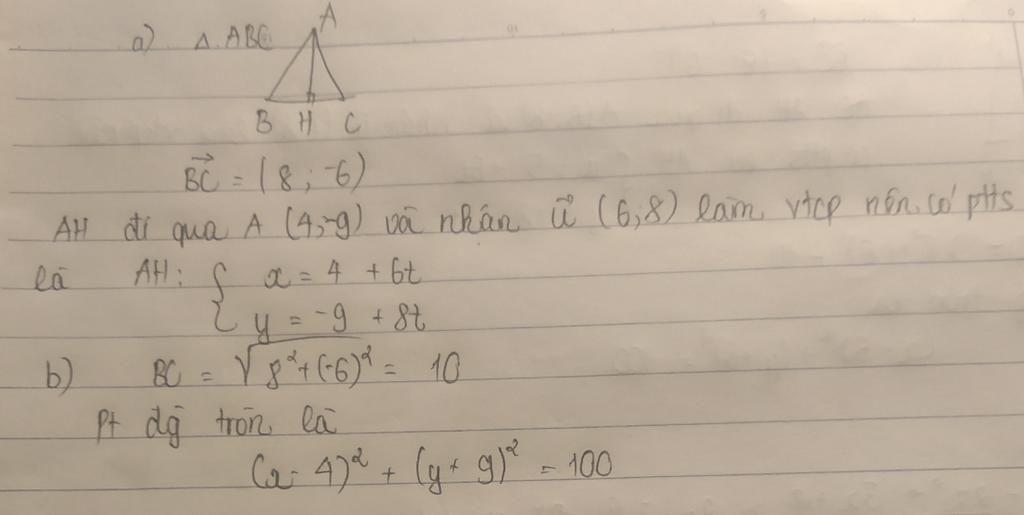 a) Δ ABC
A
B H C
BC→ = (8; -6)
AH đi qua A (4;-9) và nhận u→ (6;8) làm vtcp nên có ptts
là AH: { x = 4 + 6t
y = -9 + 8t
b) BC = √8²+(-6)² = 10
Pt đg tròn là
(x - 4)² + (y + 9)² = 100